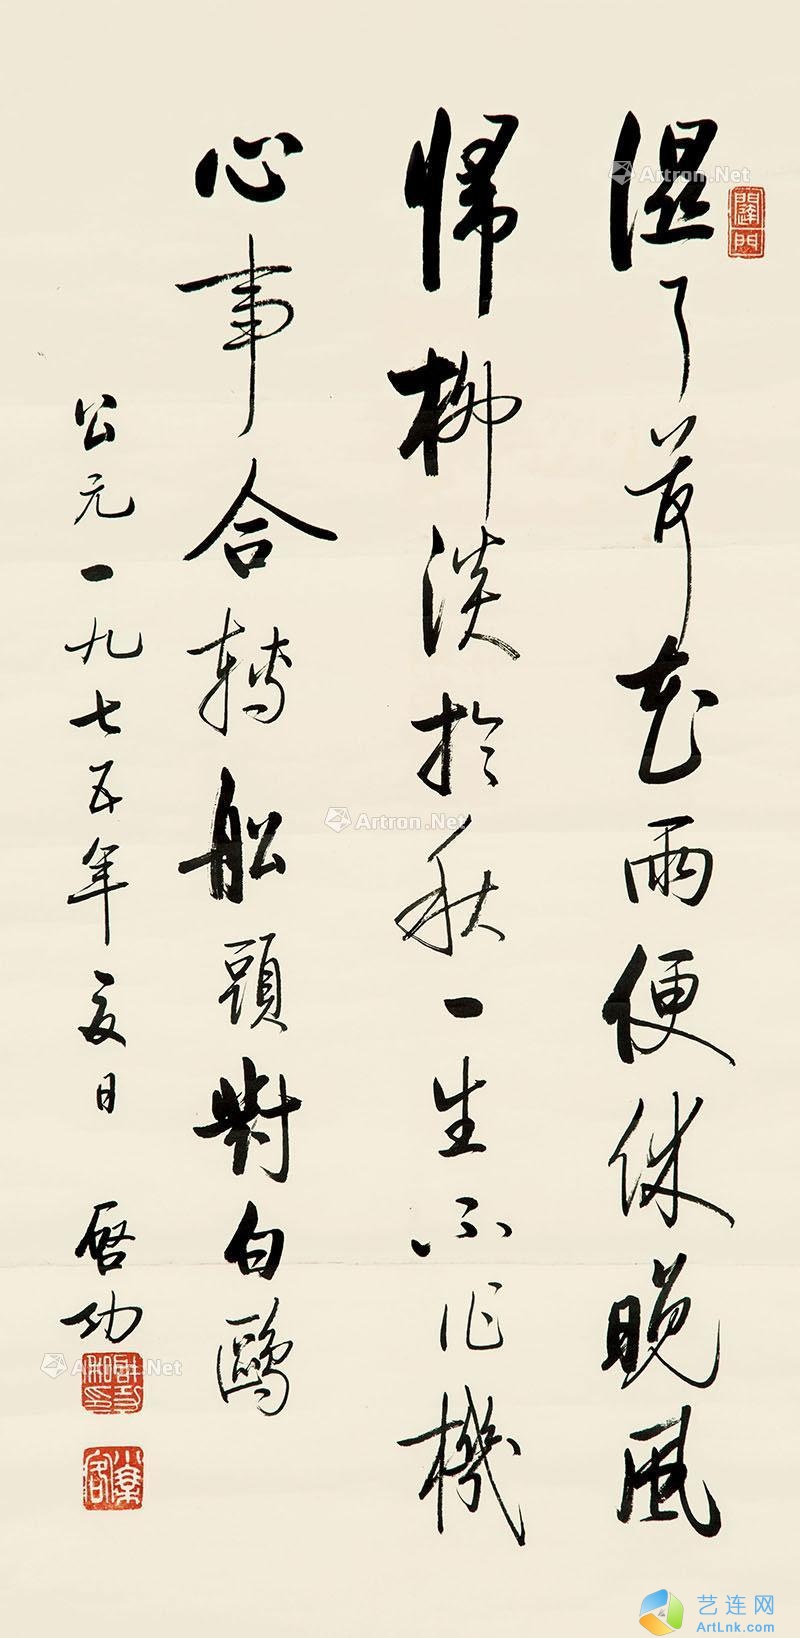 濕了荷花雨便休晚風
歸柳淡於秋一生不作機
心事合轉船頭對白鷗
公元一九七五年夏日 啓功
Artron.Net
Artron.Net
Artron.Net
艺连网
ArtLnk.com